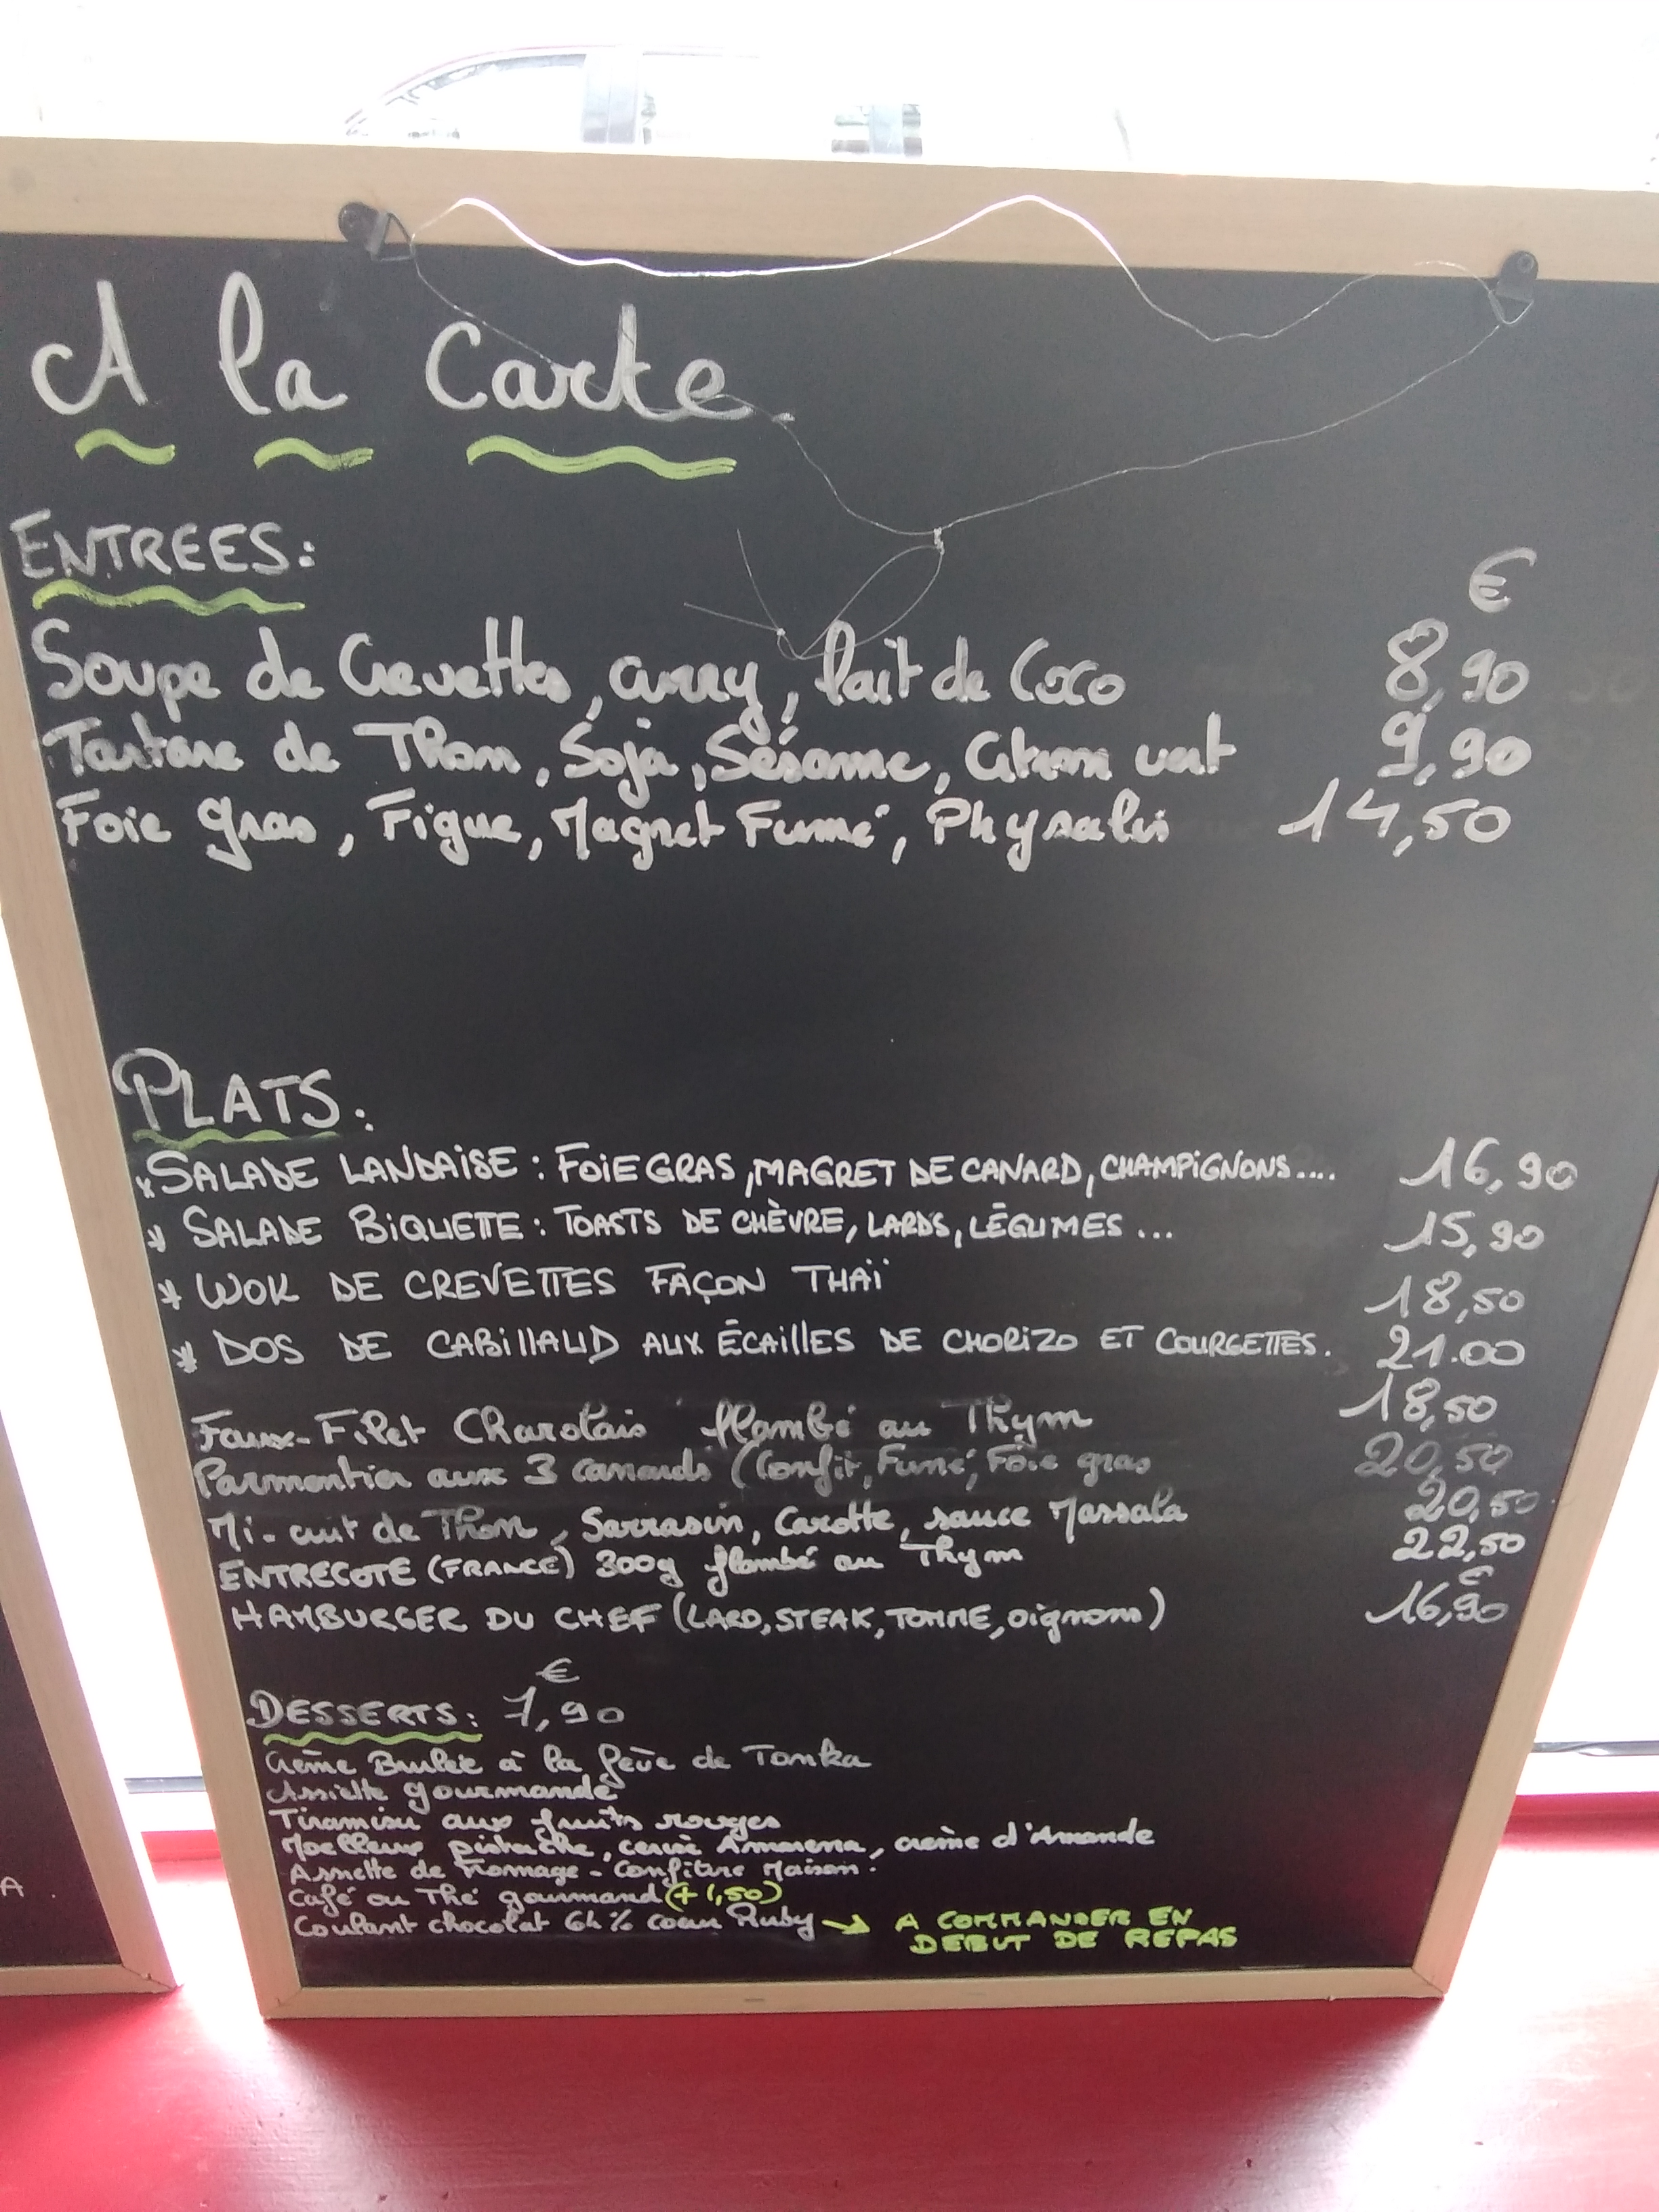 A la Carte
ENTREES:
€
Soupe de Crevettes, curry, lait de Coco 8,90
Tartare de Thon, Soja, Sésame, Citron vert 9,90
Foie gras, Figue, Magret Fumé, Physalis 14,50
PLATS:
* SALADE LANDAISE : FOIE GRAS, MAGRET DE CANARD, CHAMPIGNONS.... 16,90
* SALADE BIQUETTE : TOASTS DE CHÈVRE, LARDS, LÉGUMES ... 15,90
* WOK DE CREVETTES FAÇON THAÏ 18,50
* DOS DE CABILLAUD AUX ÉCAILLES DE CHORIZO ET COURGETTES. 21.00
Faux-Filet Charolais flambé au Thym 18,50
Parmentier aux 3 canards (Confit, Fumé, Foie gras 20,50
Mi-cuit de Thon, Sarrasin, Carotte, sauce Massala 20,50
ENTRECOTE (FRANCE) 300g flambé au Thym 22,50
€
HAMBURGER DU CHEF (LARD, STEAK, TOMME, oignons) 16,90
€
DESSERTS: 7,90
Crème Brulée à la fève de Tonka
Assiette gourmande
Tiramisu aux fruits rouges
Moelleux pistache, cerise Amarena, crème d'Amande
Assiette de Fromage - Confiture Maison.
Café ou Thé gourmand (+1,50)
Coulant chocolat 64% coeur Ruby → A COMMANDER EN
DEBUT DE REPAS
A .